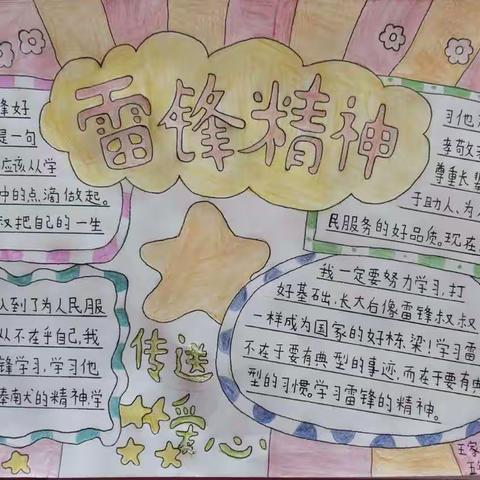 雷锋精神
锋好
是一句
应该从学
中的点滴做起。
叔把自己的一生
习他
孝敬
尊重长辈
于助人、为人
民服务的好品质。现在
入到了为人民服
从不在乎自己,我
锋学习,学习他
奉献的精神学
传送
爱心
我一定要努力学习,打
好基础,长大后像雷锋叔叔
一样成为国家的好栋梁!学习雷
不在于要有典型的事迹,而在于要有典
型的习惯。学习雷锋的精神。
王家